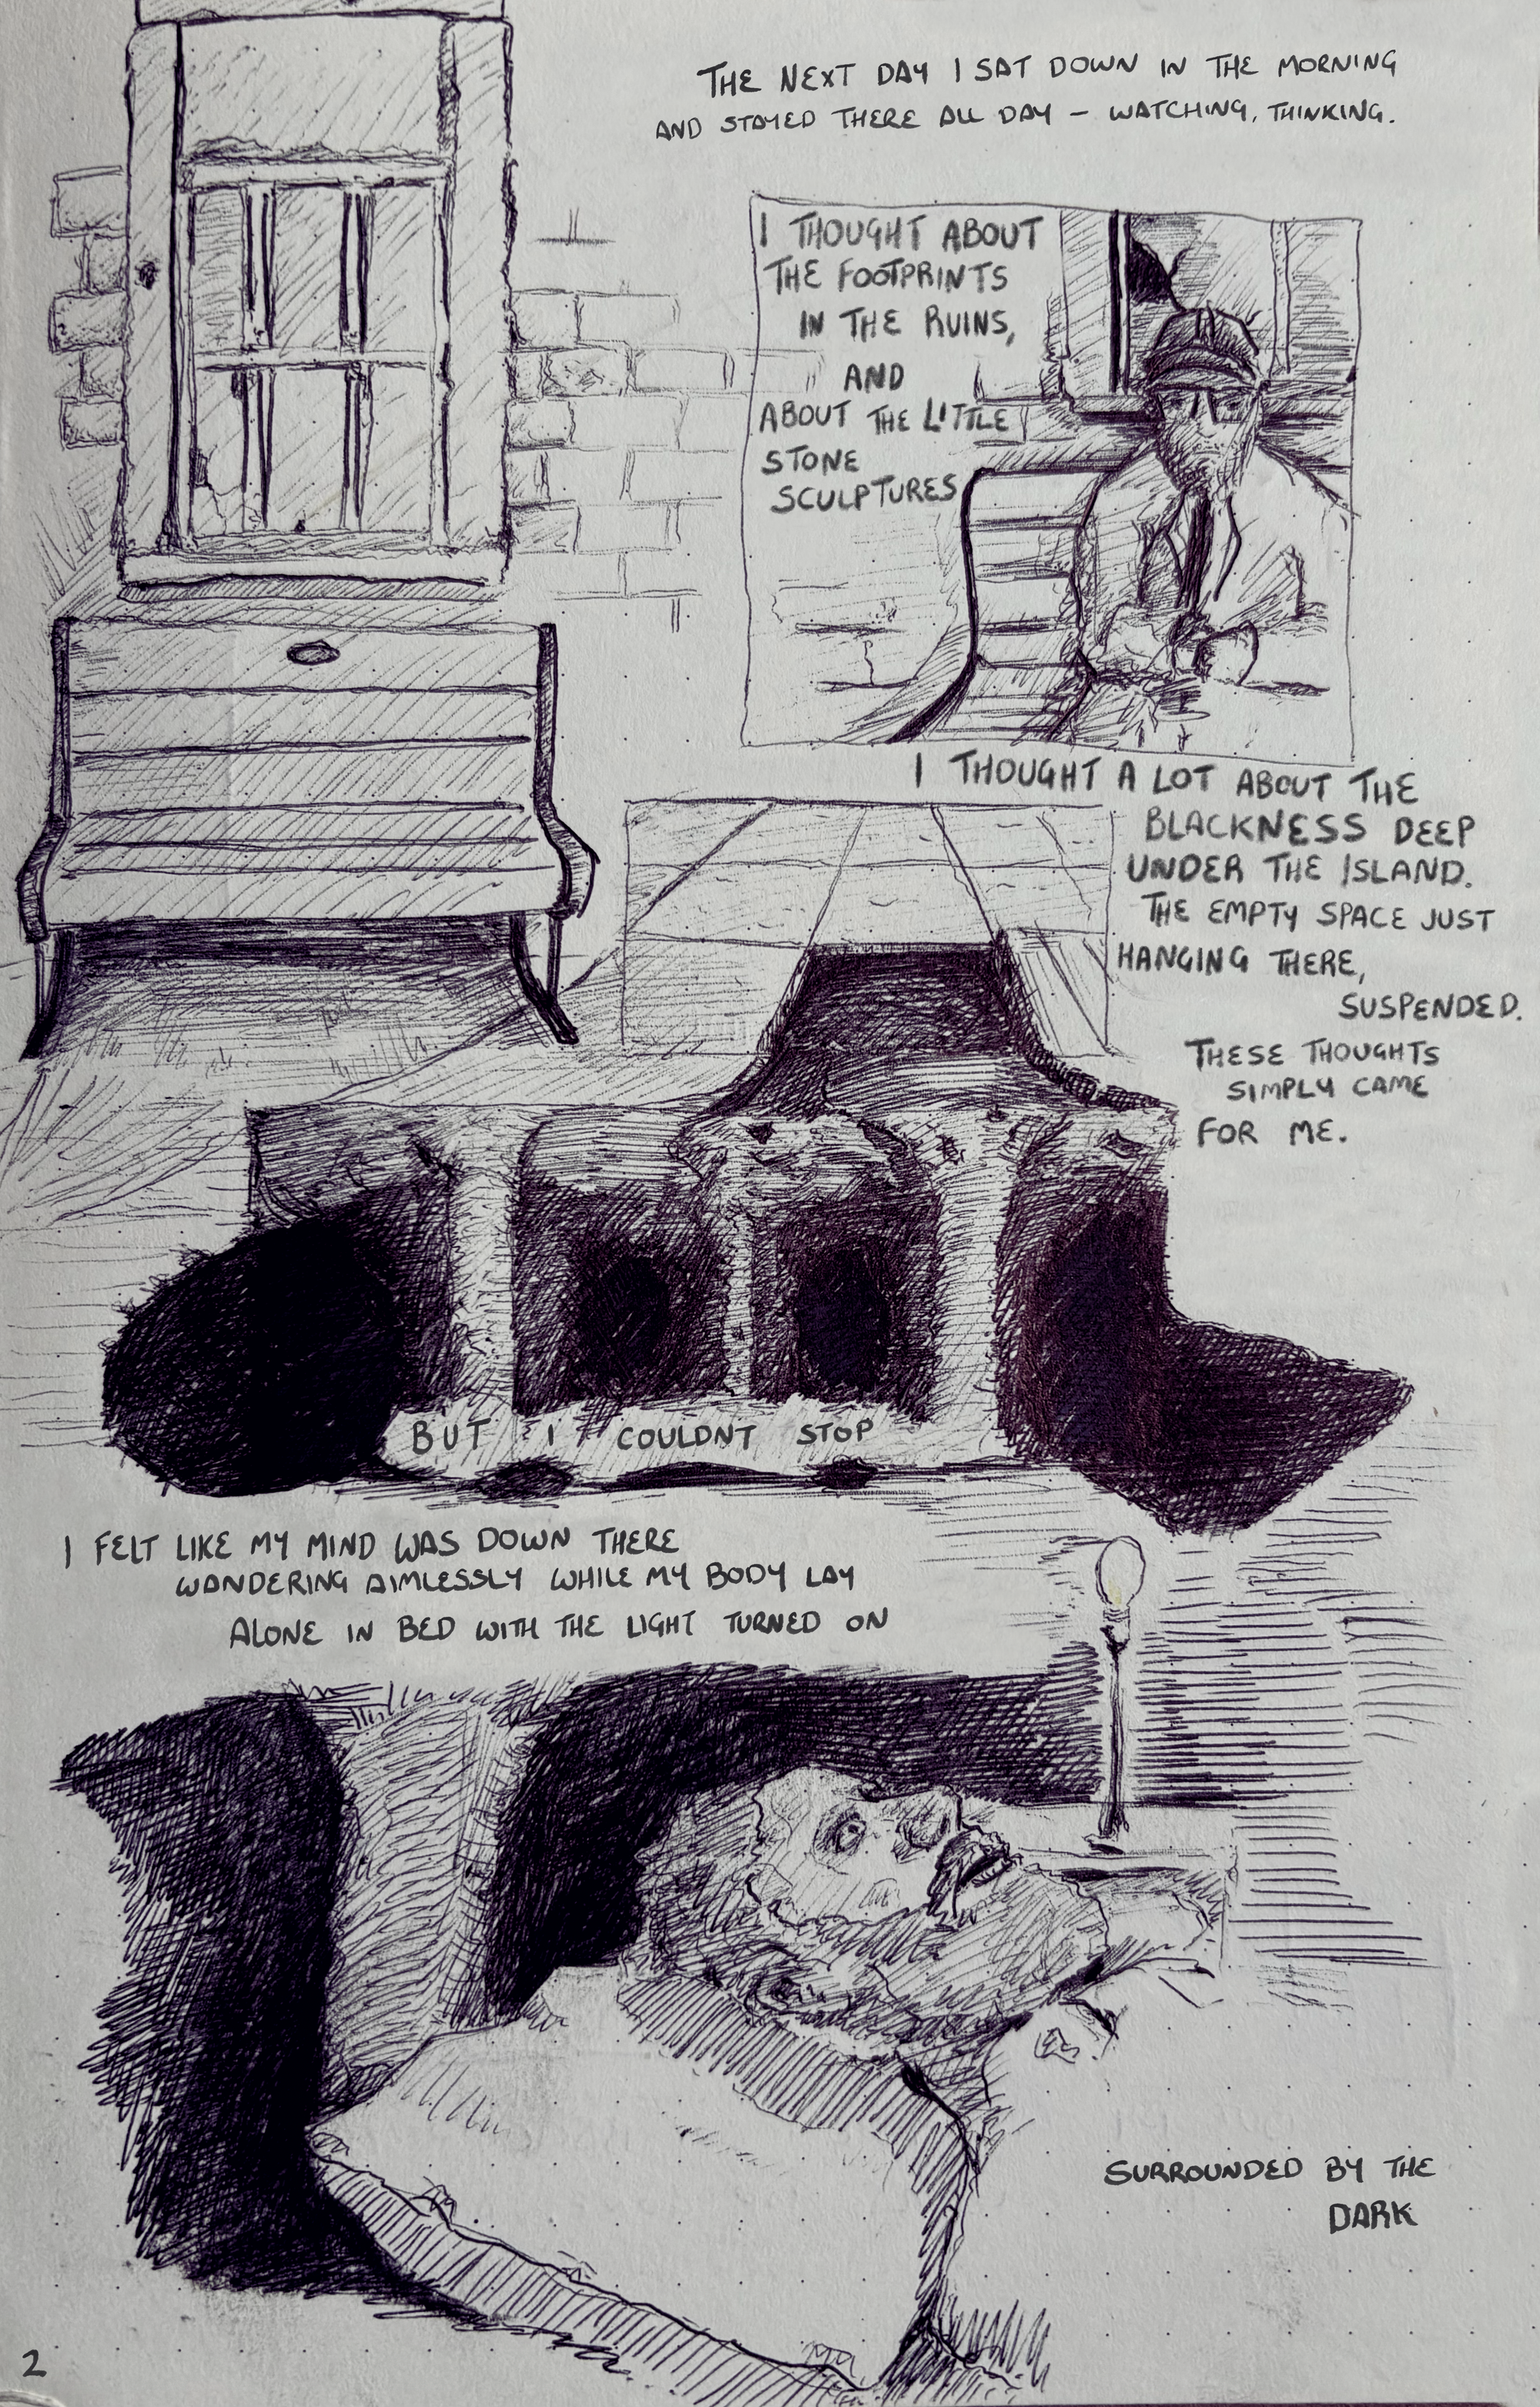 THE NEXT DAY I SAT DOWN IN THE MORNING
AND STAYED THERE ALL DAY – WATCHING, THINKING.
I THOUGHT ABOUT
THE FOOTPRINTS
IN THE RUINS,
AND
ABOUT THE LITTLE
STONE
SCULPTURES
I THOUGHT A LOT ABOUT THE
BLACKNESS DEEP
UNDER THE ISLAND.
THE EMPTY SPACE JUST
HANGING THERE,
SUSPENDED.
THESE THOUGHTS
SIMPLY CAME
FOR ME.
BUT I COULDNT STOP
I FELT LIKE MY MIND WAS DOWN THERE
WANDERING AIMLESSLY WHILE MY BODY LAY
ALONE IN BED WITH THE LIGHT TURNED ON
SURROUNDED BY THE
DARK
2